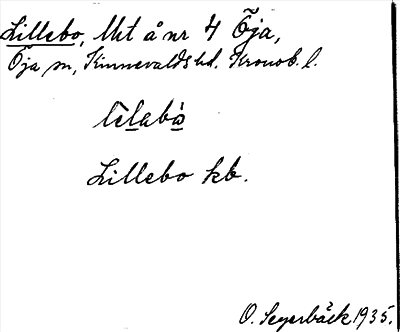 Lillebo, Uht å nr 4 Öja,
Öja sn, Kinnevalds hd. Kronob. l.
Lillebo kb.
O. Segerbäck 1935.